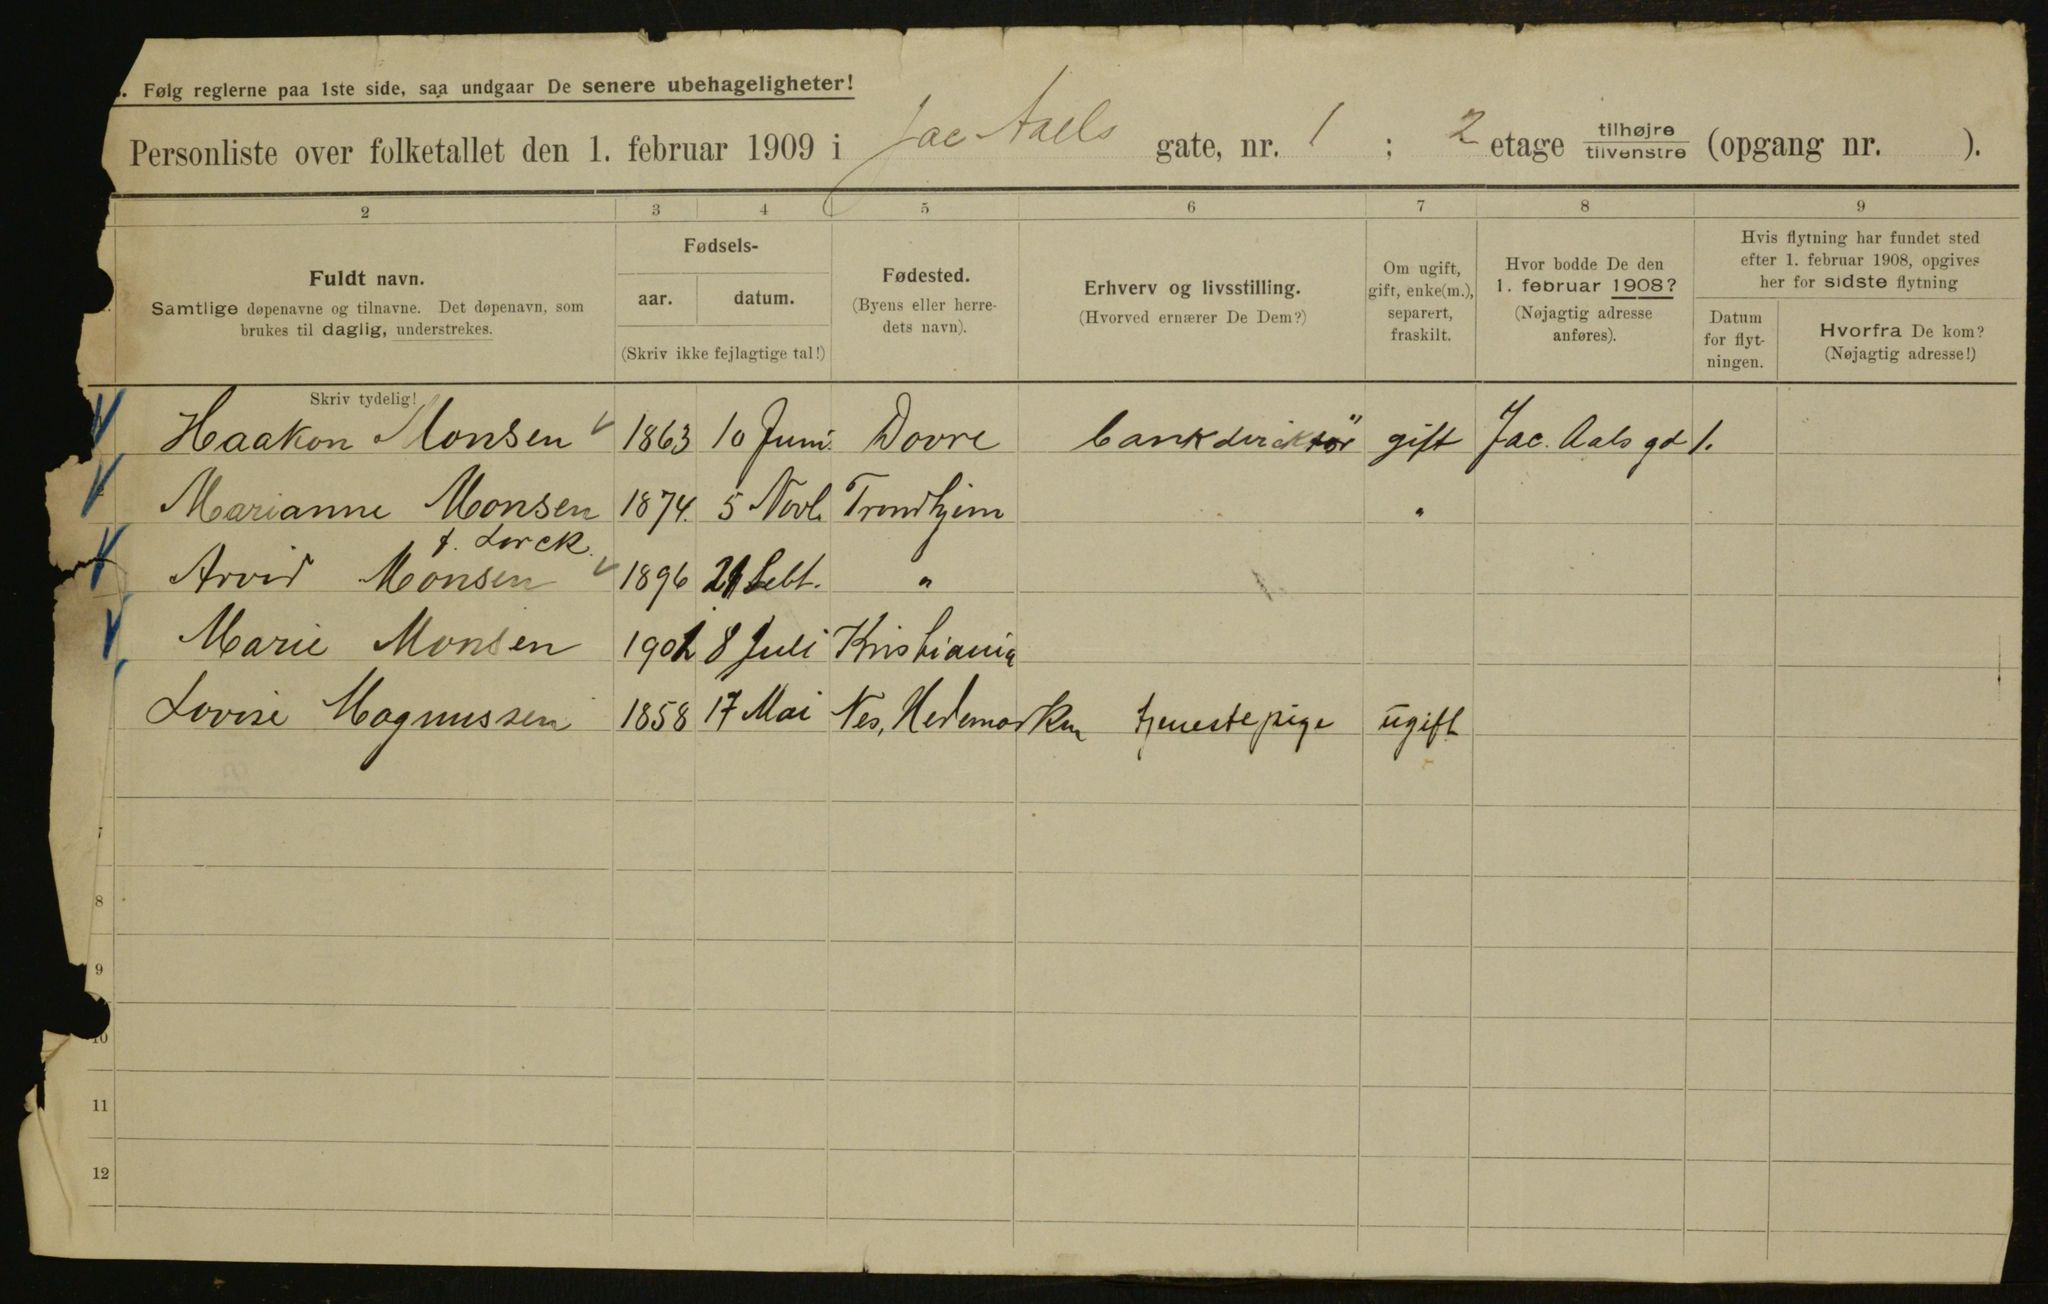 . Følg reglerne paa 1ste side, saa undgaar De senere ubehageligheter!
Personliste over folketallet den 1. februar 1909 i Jac Aaels gate, nr. 1 ; 2 etage tilhøjre/tilvenstre (opgang nr. ).
2 3 4 5 6 7 8 9
Fuldt navn.
Samtlige døpenavne og tilnavne. Det døpenavn, som
brukes til daglig, understrekes.
Fødsels-
aar. datum.
(Skriv ikke fejlagtige tal!)
Fødested.
(Byens eller herre-
dets navn).
Erhverv og livsstilling.
(Hvorved ernærer De Dem?)
Om ugift,
gift, enke(m.),
separert,
fraskilt.
Hvor bodde De den
1. februar 1908?
(Nøjagtig adresse
anføres).
Hvis flytning har fundet sted
efter 1. februar 1908, opgives
her for sidste flytning
Datum
for flyt-
ningen.
Hvorfra De kom?
(Nøjagtig adresse!)
Skriv tydelig!
Haakon Monsen 1863 10 Juni. Dovre bankdirektör gift Jac. Aals gd 1.
Marianne Monsen 1874. 5 Novb. Trondhjem "
f. Lorck.
Arvid Monsen 1896 21 Sebt. "
Marie Monsen 1901 8 Juli Kristiania
Lovise Magnussen 1858 17 Mai Nes, Hedemarken tjenestepige ugift
7
8
9
10
11
12